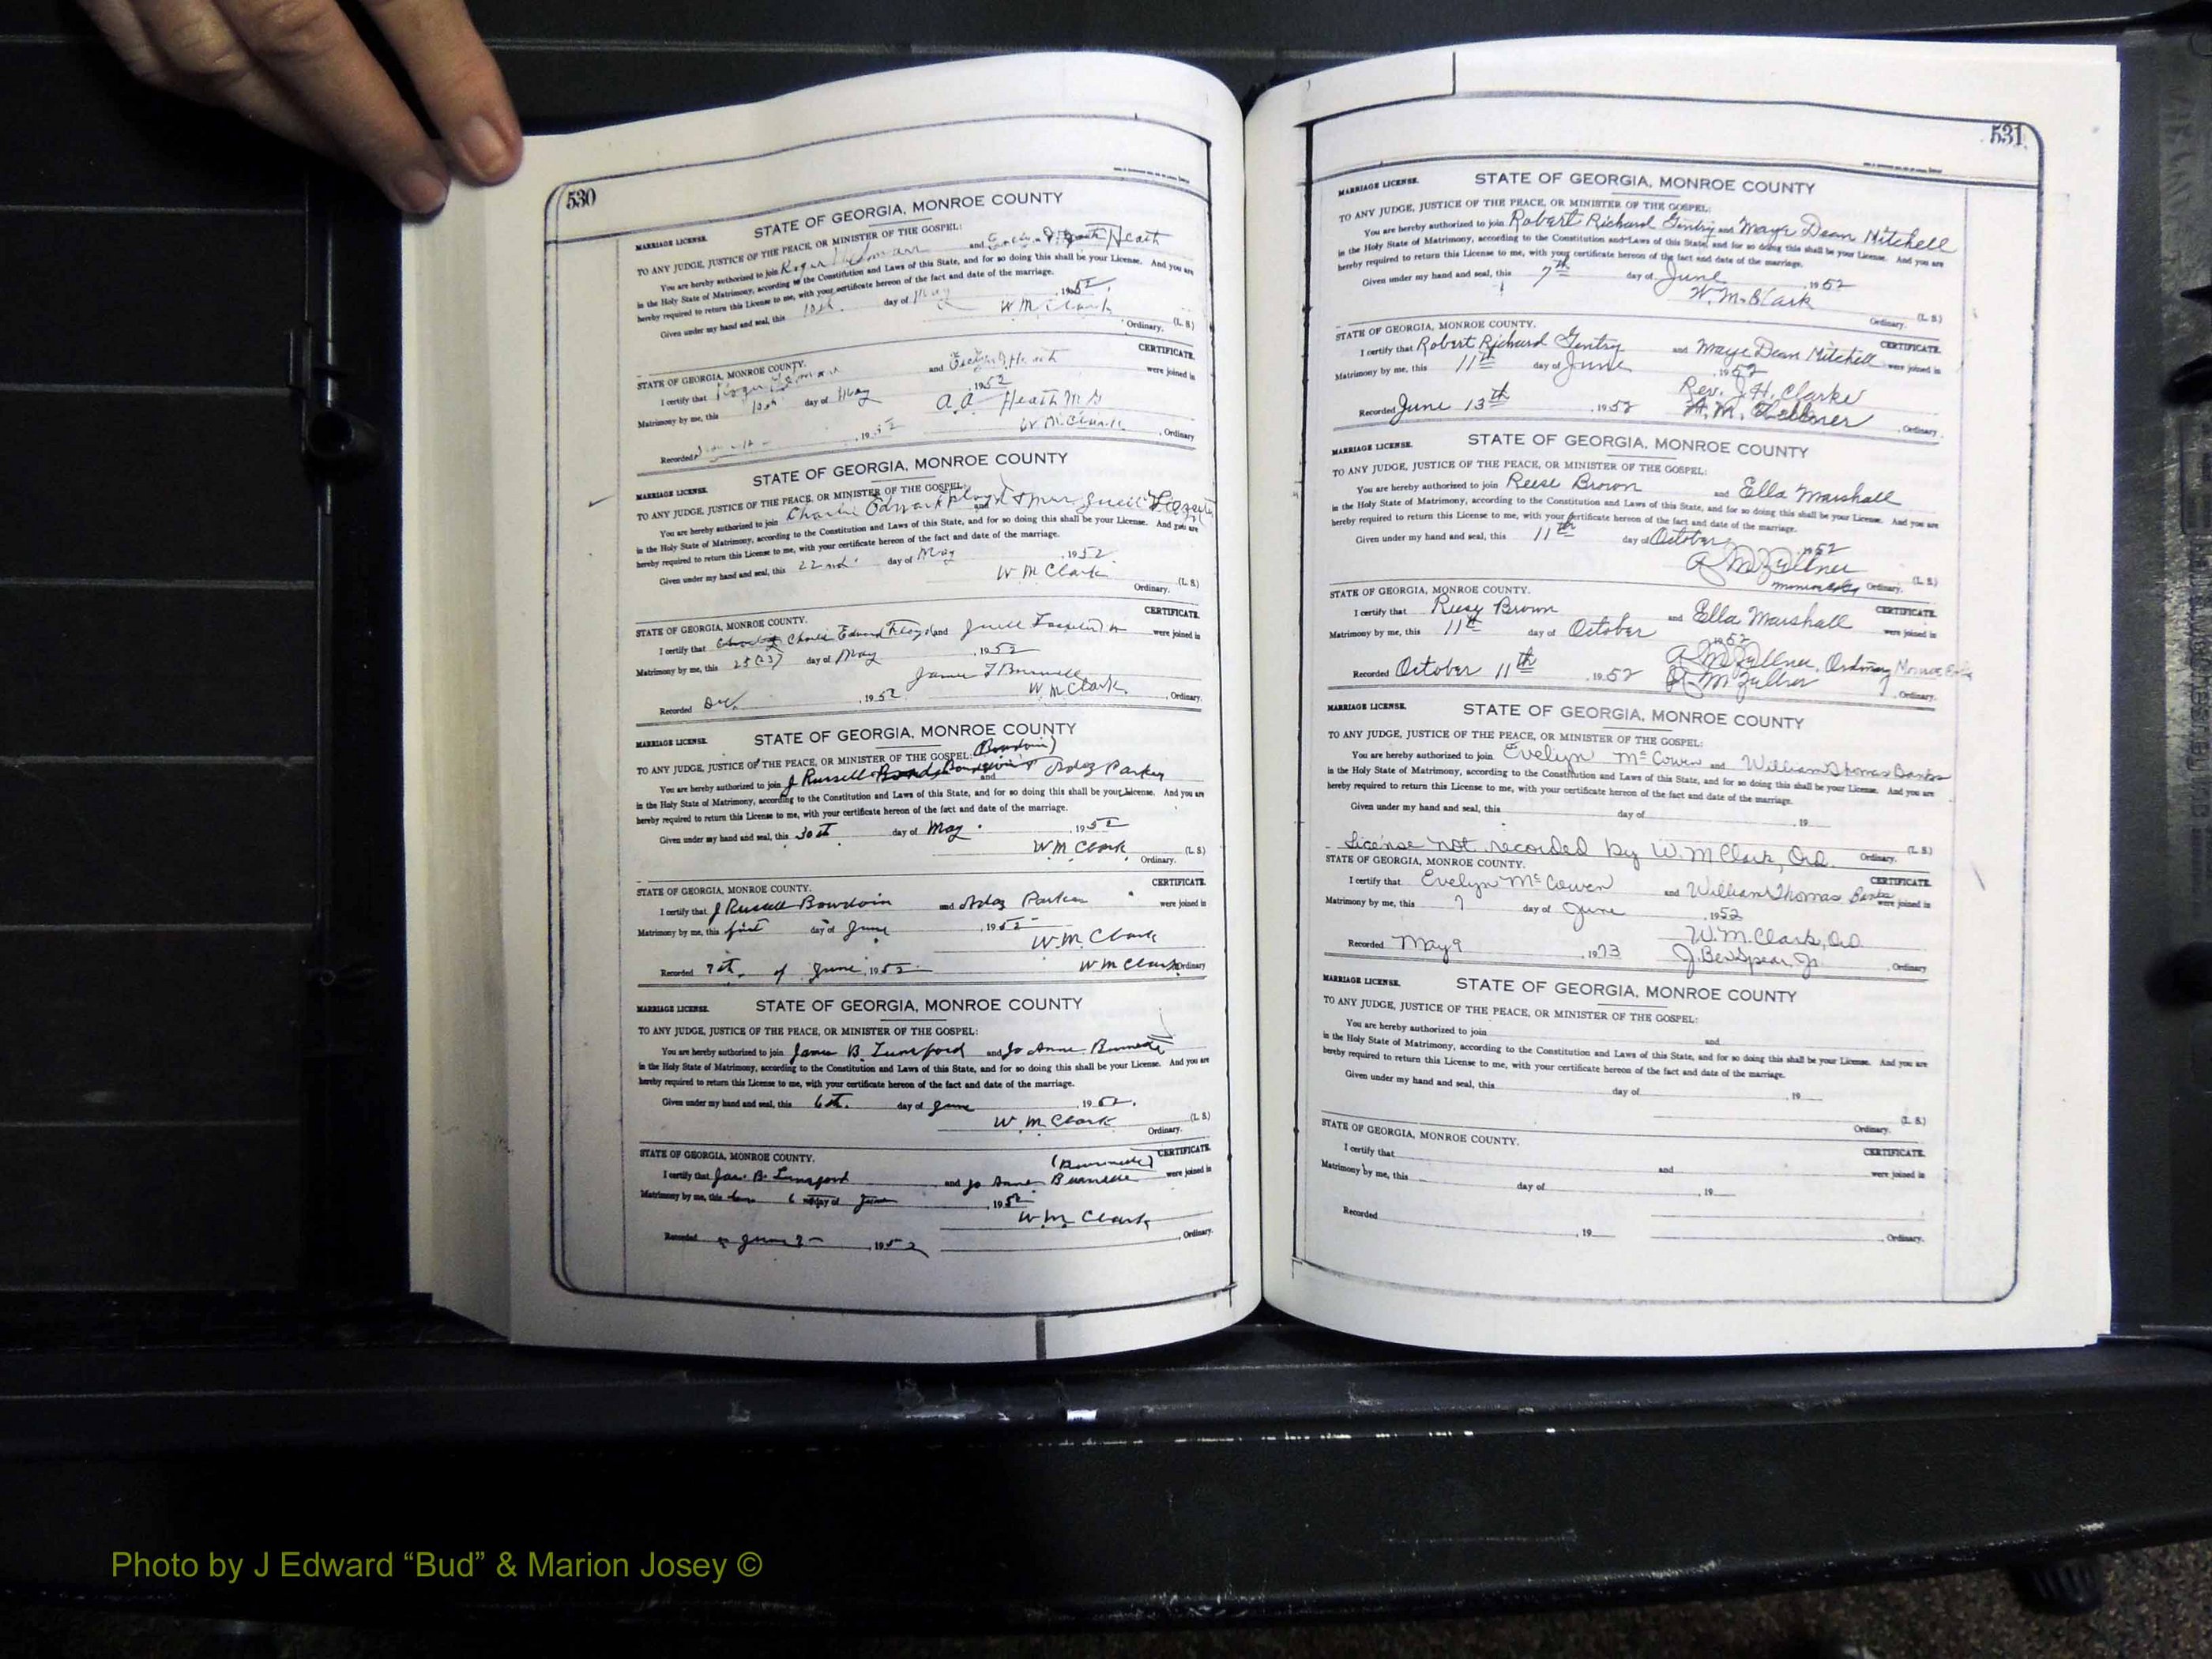 530
MARRIAGE LICENSE. STATE OF GEORGIA, MONROE COUNTY
TO ANY JUDGE, JUSTICE OF THE PEACE, OR MINISTER OF THE GOSPEL:
You are hereby authorized to join Roger and Heath
in the Holy State of Matrimony, according to the Constitution and Laws of this State, and for so doing this shall be your License. And you are
hereby required to return this License to me, with your certificate hereon of the fact and date of the marriage.
Given under my hand and seal, this 10th. day of May, 1952.
W M Clark (L. S.)
Ordinary.
STATE OF GEORGIA, MONROE COUNTY. CERTIFICATE.
I certify that Roger and Heath were joined in
Matrimony by me, this 10th day of May, 1952
A. A. Heath M G
Recorded , 1952 W. M. Clark, Ordinary
MARRIAGE LICENSE. STATE OF GEORGIA, MONROE COUNTY
TO ANY JUDGE, JUSTICE OF THE PEACE, OR MINISTER OF THE GOSPEL:
You are hereby authorized to join Charlie Edward Floyd and
in the Holy State of Matrimony, according to the Constitution and Laws of this State, and for so doing this shall be your License. And you are
hereby required to return this License to me, with your certificate hereon of the fact and date of the marriage.
Given under my hand and seal, this 22nd. day of May, 1952.
W M Clark (L. S.)
Ordinary.
STATE OF GEORGIA, MONROE COUNTY. CERTIFICATE.
I certify that Charlie Edward Floyd and were joined in
Matrimony by me, this 25(23) day of May, 1952
James
Recorded , 1952 W. M. Clark, Ordinary.
MARRIAGE LICENSE. STATE OF GEORGIA, MONROE COUNTY
TO ANY JUDGE, JUSTICE OF THE PEACE, OR MINISTER OF THE GOSPEL: (Bowdoin)
You are hereby authorized to join J Russell and Parker
in the Holy State of Matrimony, according to the Constitution and Laws of this State, and for so doing this shall be your License. And you are
hereby required to return this License to me, with your certificate hereon of the fact and date of the marriage.
Given under my hand and seal, this 30th day of May, 1952
W. M. Clark (L. S.)
Ordinary.
STATE OF GEORGIA, MONROE COUNTY. CERTIFICATE.
I certify that J Russell Bowdoin and Parker were joined in
Matrimony by me, this first day of June, 1952
W. M. Clark
Recorded 7th. of June, 1952 W M Clark, Ordinary
MARRIAGE LICENSE. STATE OF GEORGIA, MONROE COUNTY
TO ANY JUDGE, JUSTICE OF THE PEACE, OR MINISTER OF THE GOSPEL:
You are hereby authorized to join James B. Lunsford and Jo Anne
in the Holy State of Matrimony, according to the Constitution and Laws of this State, and for so doing this shall be your License. And you are
hereby required to return this License to me, with your certificate hereon of the fact and date of the marriage.
Given under my hand and seal, this 6th. day of June, 1952.
W. M. Clark (L. S.)
Ordinary.
STATE OF GEORGIA, MONROE COUNTY. CERTIFICATE.
I certify that Jas. B. Lunsford and Jo Anne were joined in
Matrimony by me, this 6 day of June, 1952
W. M. Clark
Recorded June 7, 1952, Ordinary.
531
MARRIAGE LICENSE. STATE OF GEORGIA, MONROE COUNTY
TO ANY JUDGE, JUSTICE OF THE PEACE, OR MINISTER OF THE GOSPEL:
You are hereby authorized to join Robert Richard Gentry and Maye Dean Mitchell
in the Holy State of Matrimony, according to the Constitution and Laws of this State, and for so doing this shall be your License. And you are
hereby required to return this License to me, with your certificate hereon of the fact and date of the marriage.
Given under my hand and seal, this 7th day of June, 1952
W. M. Clark (L. S.)
Ordinary.
STATE OF GEORGIA, MONROE COUNTY. CERTIFICATE.
I certify that Robert Richard Gentry and Maye Dean Mitchell were joined in
Matrimony by me, this 11th day of June, 1952
Rev. J. H. Clarke
Recorded June 13th, 1952 A. M. Zellner, Ordinary.
MARRIAGE LICENSE. STATE OF GEORGIA, MONROE COUNTY
TO ANY JUDGE, JUSTICE OF THE PEACE, OR MINISTER OF THE GOSPEL:
You are hereby authorized to join Reese Brown and Ella Marshall
in the Holy State of Matrimony, according to the Constitution and Laws of this State, and for so doing this shall be your License. And you are
hereby required to return this License to me, with your certificate hereon of the fact and date of the marriage.
Given under my hand and seal, this 11th day of October, 1952
A M Zellner (L. S.)
Monroe Ordinary.
STATE OF GEORGIA, MONROE COUNTY. CERTIFICATE.
I certify that Reesy Brown and Ella Marshall were joined in
Matrimony by me, this 11th day of October 1952
A M Zellner, Ordinary Monroe
Recorded October 11th, 1952 A M Zellner, Ordinary.
MARRIAGE LICENSE. STATE OF GEORGIA, MONROE COUNTY
TO ANY JUDGE, JUSTICE OF THE PEACE, OR MINISTER OF THE GOSPEL:
You are hereby authorized to join Evelyn McCowen and William Thomas Banks
in the Holy State of Matrimony, according to the Constitution and Laws of this State, and for so doing this shall be your License. And you are
hereby required to return this License to me, with your certificate hereon of the fact and date of the marriage.
Given under my hand and seal, this day of , 19
License not recorded by W. M Clark, Ord. (L. S.)
Ordinary.
STATE OF GEORGIA, MONROE COUNTY. CERTIFICATE.
I certify that Evelyn McCowen and William Thomas Banks were joined in
Matrimony by me, this 7 day of June, 1952
W. M. Clark, Ord.
Recorded May 9, 1973 J. Ben Spear, Jr., Ordinary
MARRIAGE LICENSE. STATE OF GEORGIA, MONROE COUNTY
TO ANY JUDGE, JUSTICE OF THE PEACE, OR MINISTER OF THE GOSPEL:
You are hereby authorized to join and
in the Holy State of Matrimony, according to the Constitution and Laws of this State, and for so doing this shall be your License. And you are
hereby required to return this License to me, with your certificate hereon of the fact and date of the marriage.
Given under my hand and seal, this day of , 19
(L. S.)
Ordinary.
STATE OF GEORGIA, MONROE COUNTY. CERTIFICATE.
I certify that and were joined in
Matrimony by me, this day of , 19
Recorded , 19 , Ordinary.
Photo by J Edward “Bud” & Marion Josey ©